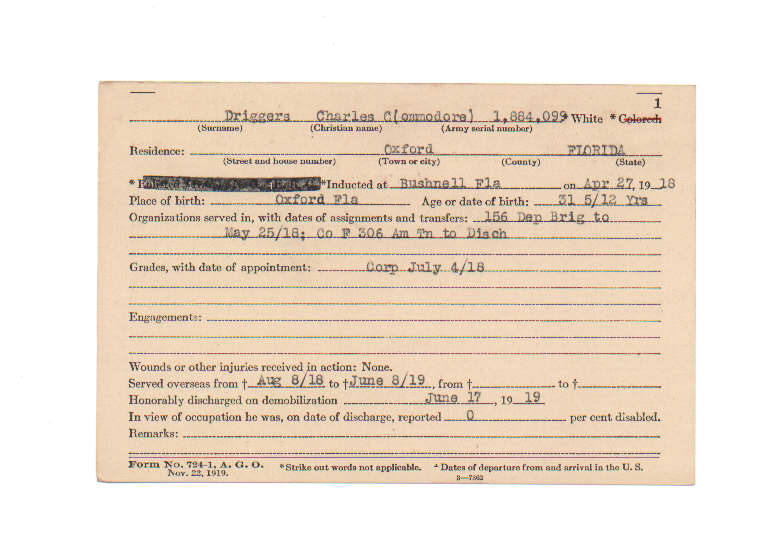 1
Driggers Charles C(ommodore) 1,884,099 * White * Colored
(Surname) (Christian name) (Army serial number)
Residence: Oxford FLORIDA
(Street and house number) (Town or city) (County) (State)
* Enlisted *Inducted at Bushnell Fla on Apr 27, 19 18
Place of birth: Oxford Fla Age or date of birth: 31 5/12 Yrs
Organizations served in, with dates of assignments and transfers: 156 Dep Brig to
May 25/18; Co F 306 Am Tn to Disch
Grades, with date of appointment: Corp July 4/18
Engagements:
Wounds or other injuries received in action: None.
Served overseas from † Aug 8/18 to † June 8/19, from † to †
Honorably discharged on demobilization June 17, 19 19
In view of occupation he was, on date of discharge, reported 0 per cent disabled.
Remarks:
Form No. 724-1, A. G. O. *Strike out words not applicable. † Dates of departure from and arrival in the U. S.
Nov. 22, 1919. 3—7363